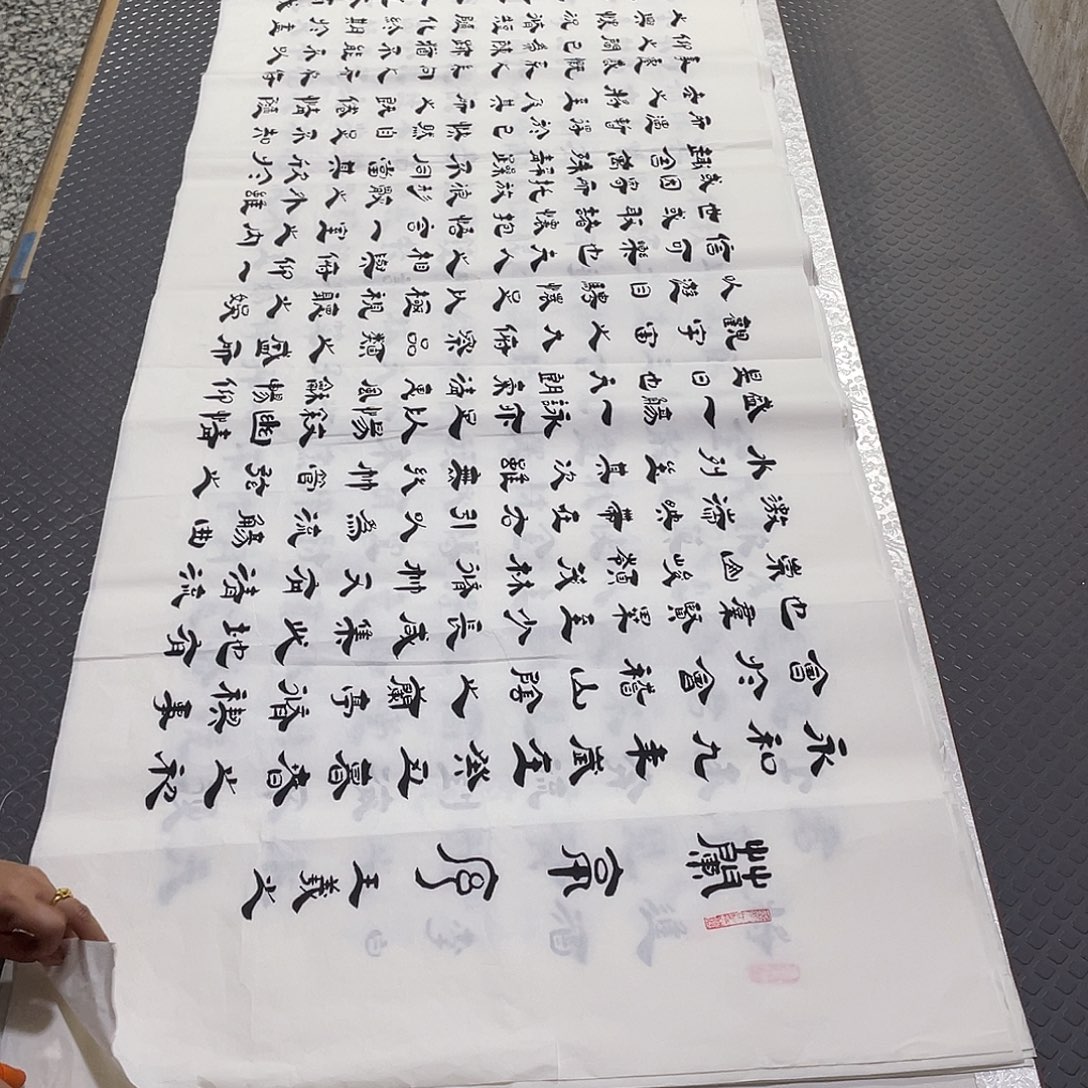 蘭亭序 王羲之
永和九年歲在癸丑暮春之初
會於會稽山陰之蘭亭脩禊事
也羣賢畢至少長咸集此地有
崇山峻領茂林脩竹又有清流
激湍映帶左右引以為流觴曲
水列坐其次雖無絲竹管弦之
盛一觴一詠亦足以暢敘幽情
是日也天朗氣清惠風和暢仰
觀宇宙之大俯察品類之盛所
以遊目騁懷足以極視聽之娛
信可樂也夫人之相與俯仰一
世或取諸懷抱悟言一室之內
或因寄所託放浪形骸之外雖
趣舍萬殊靜躁不同當其欣於
所遇暫得於己快然自足不知
老之將至及其所之既倦情隨
事遷感慨係之矣向之所欣俛
仰之間已為陳跡猶不能不以
之興懷況脩短隨化終期於盡